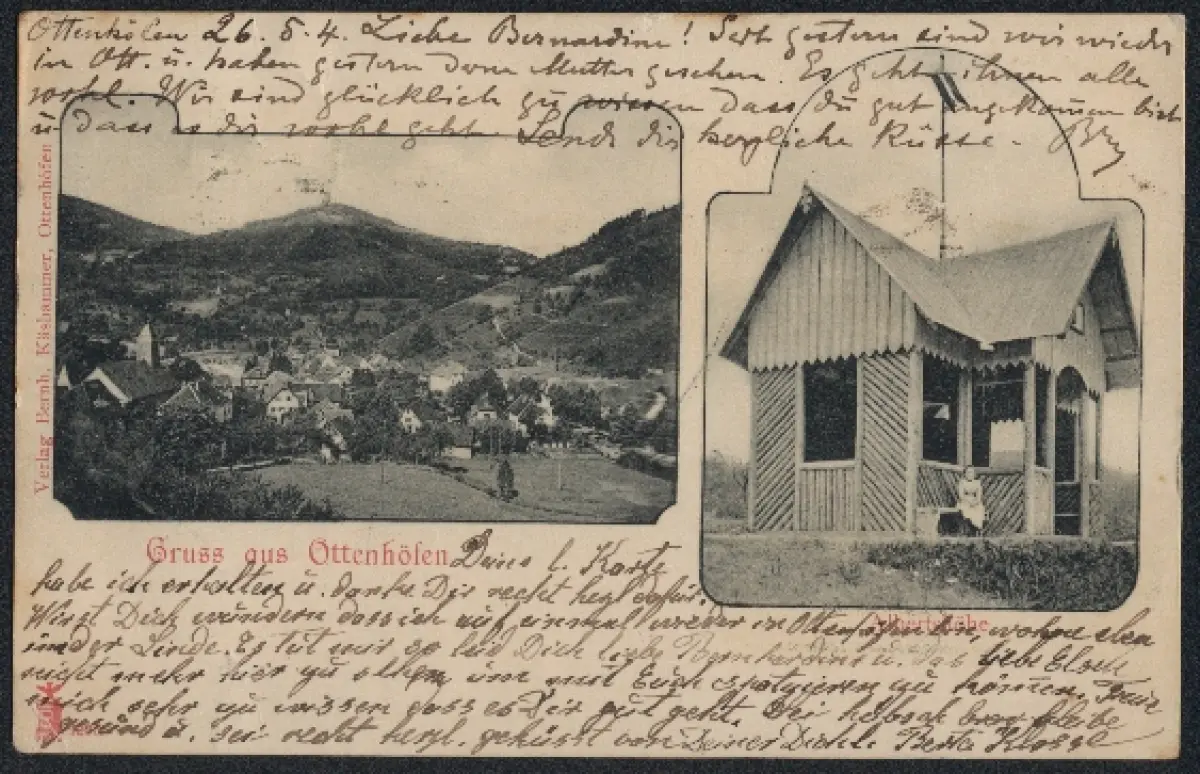 Ottenhöfen 26. 5. 4. Liebe Bernardine! Seit gestern sind wir wieder
in Ott. u. haben gestern deine Mutter gesehen. Es geht ihnen alle
wohl. Wir sind glücklich zu wissen dass du gut angekommen bist
u. dass es dir wohl geht. Sende dir herzliche Küsse.
Verlag Bernh. Käshammer, Ottenhöfen
Gruss aus Ottenhöfen
Deine l. Karte
habe ich erhalten u. danke Dir recht herzl. dafür.
Wirst Dich wundern dass ich auf einmal wieder in Ottenhöfen bin, wohne eben
in der Linde. Es tut mir so leid Dich liebe Bernhardine u. das liebe Elsch
nicht mehr hier zu sehen, um mit Euch spazieren zu können. Freue
mich sehr zu wissen dass es Dir gut geht. Sei hübsch brav bleibe
gesund u. sei recht herzl. geküsst von Deiner Dich l. Berta Klosse
Albertshöhe